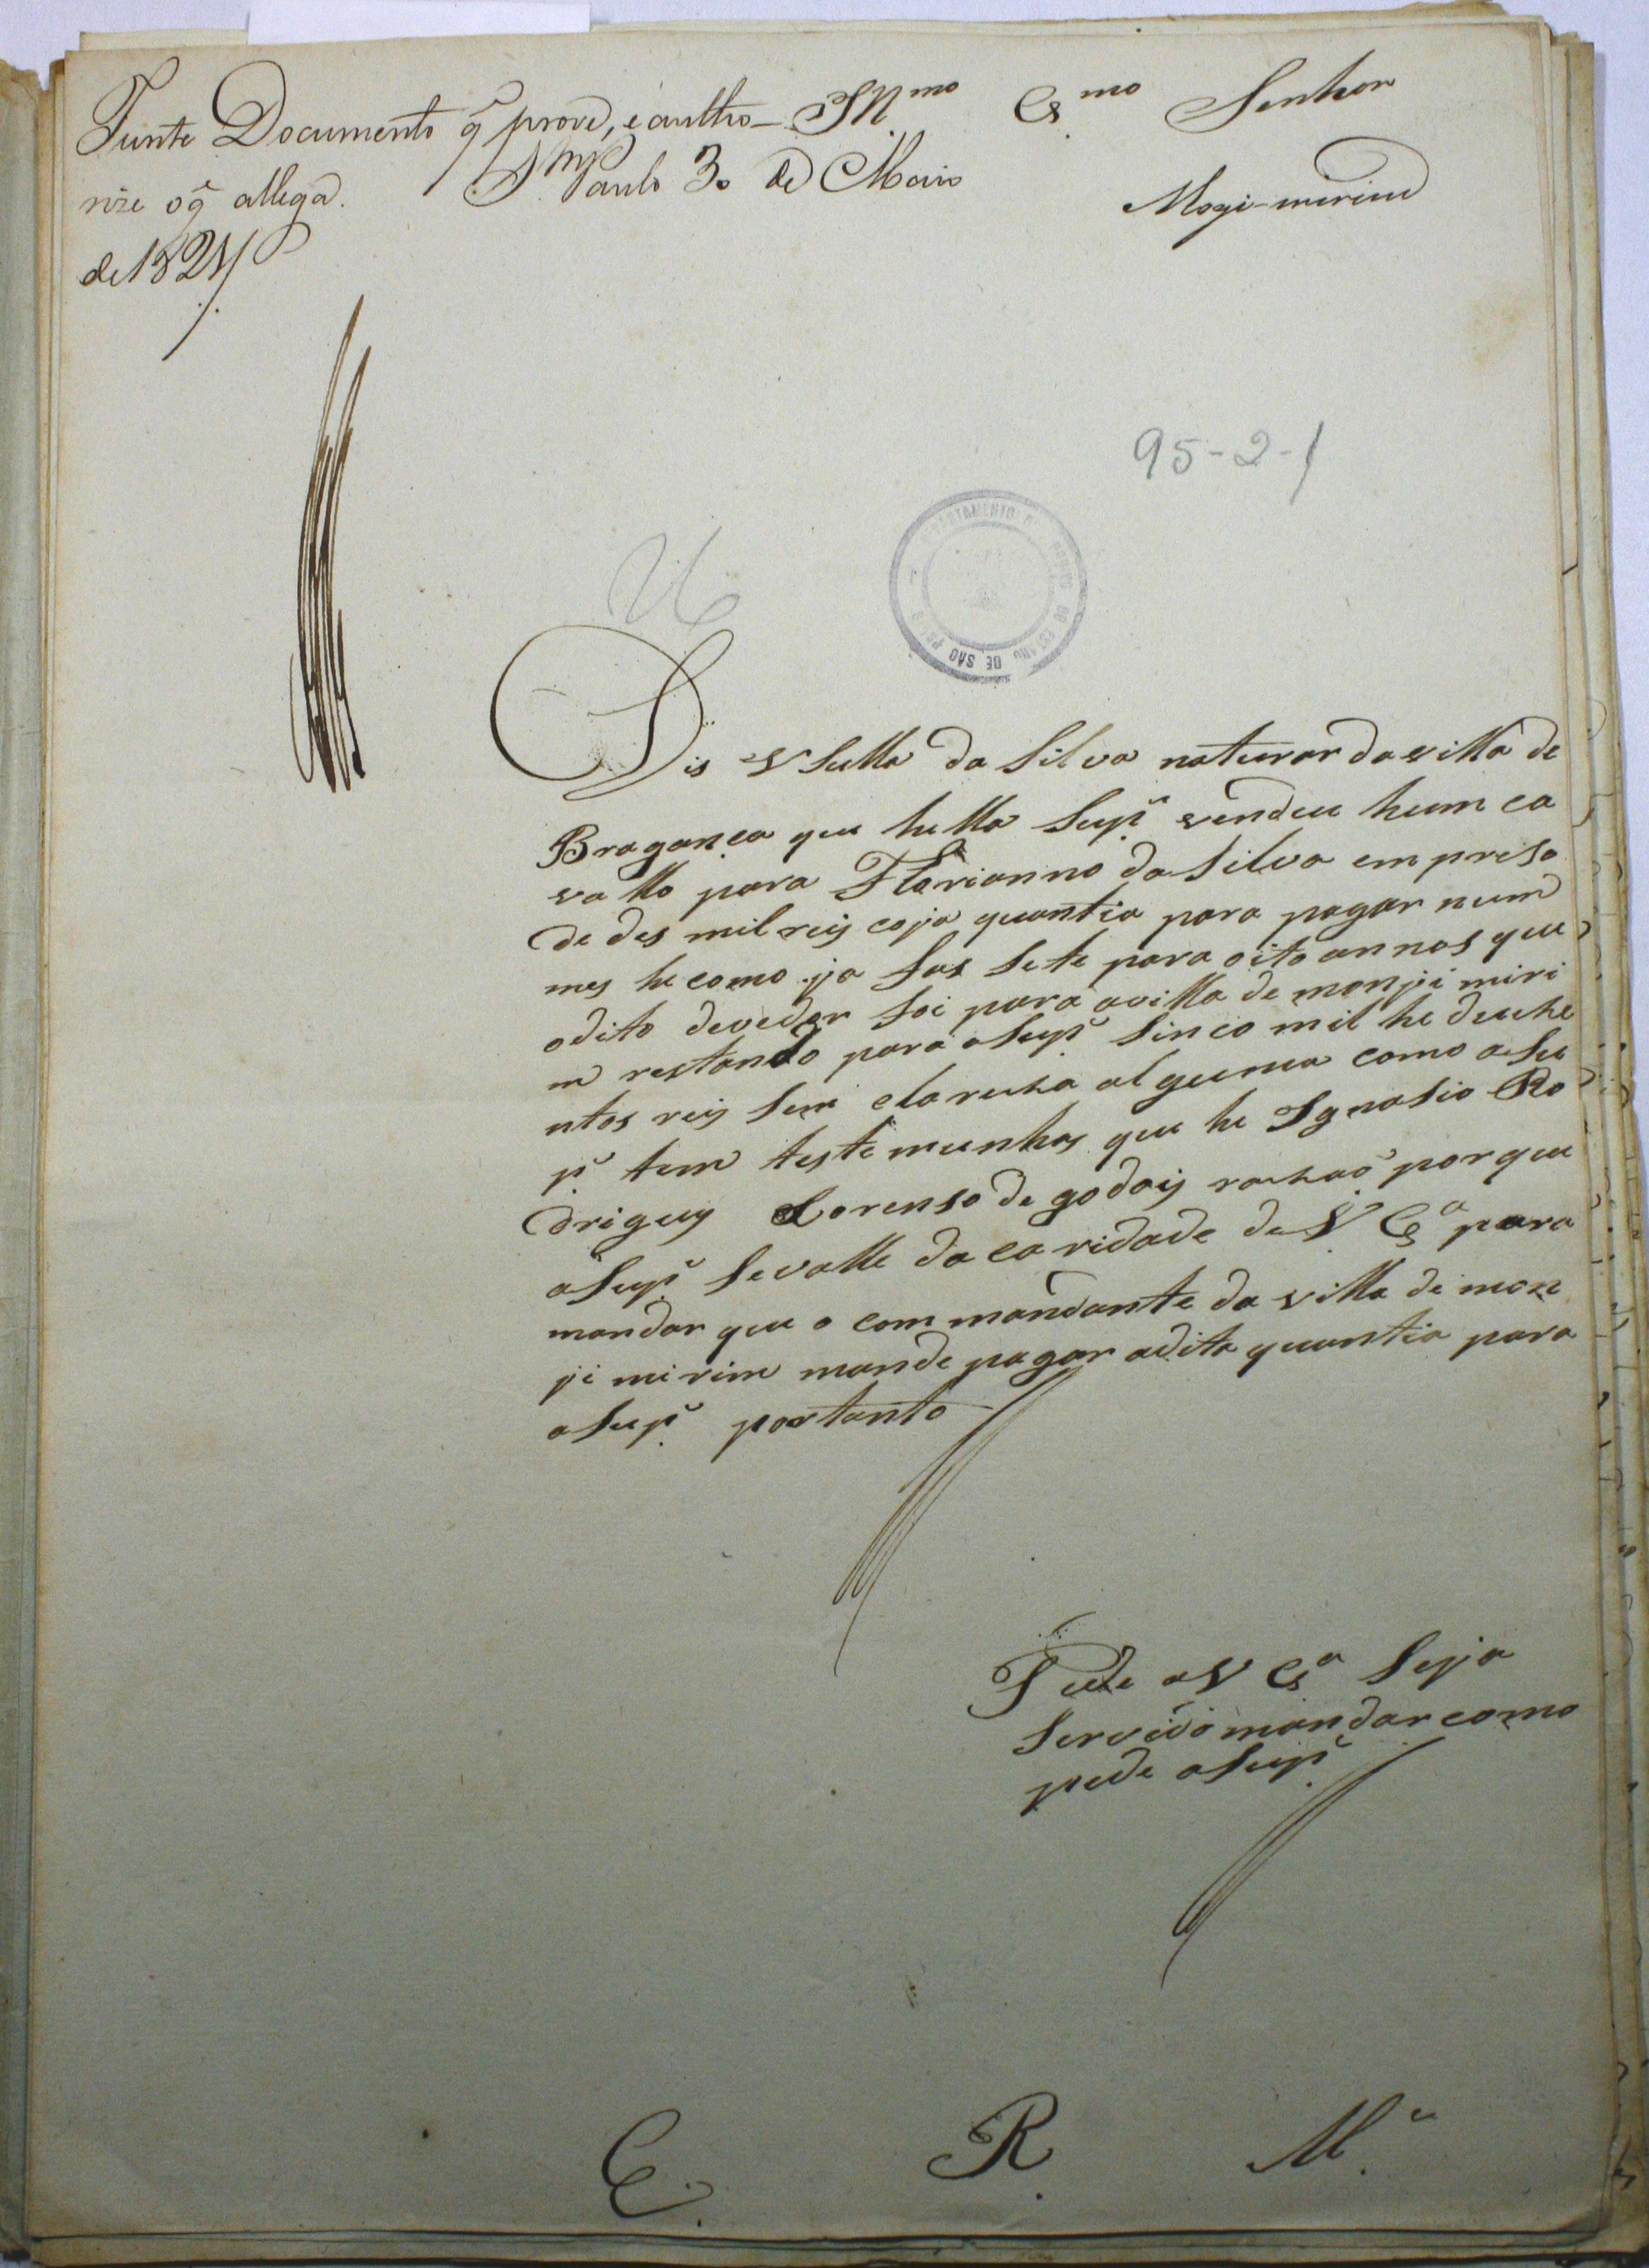 Junte Documento q̃ prove, e autho-
rize o q̃ allega. S. Paulo 30 de Maio
de 1821
Illmo Exmo Senhor
Mogi-mirim
95-2-1
DE SÃO
Dis Vsulla da Silva naturar da villa de
Bragança que hella Supe vendeu hum ca
vallo para Florianno da Silva em preso
de des mil reis coja quantia para pagar num
mes he como ja fas sete para oito annos que
odito devedor foi para avilla de monji miri
m restando para aSupe sinco mil he duche
ntos reis sem clarecha alguma como aSu
pe tem testemunhas que he Ignasio Ro
drigues Lorenso de godois rachaõ porque
aSupe sevalle da caridade de V Exa para
mandar que o commandante da villa de mon
ji mirim mande pagar adita quantia para
aSupe portanto
Pede aV Exa seja
servido mandar como
pede aSupe
E. R. Me